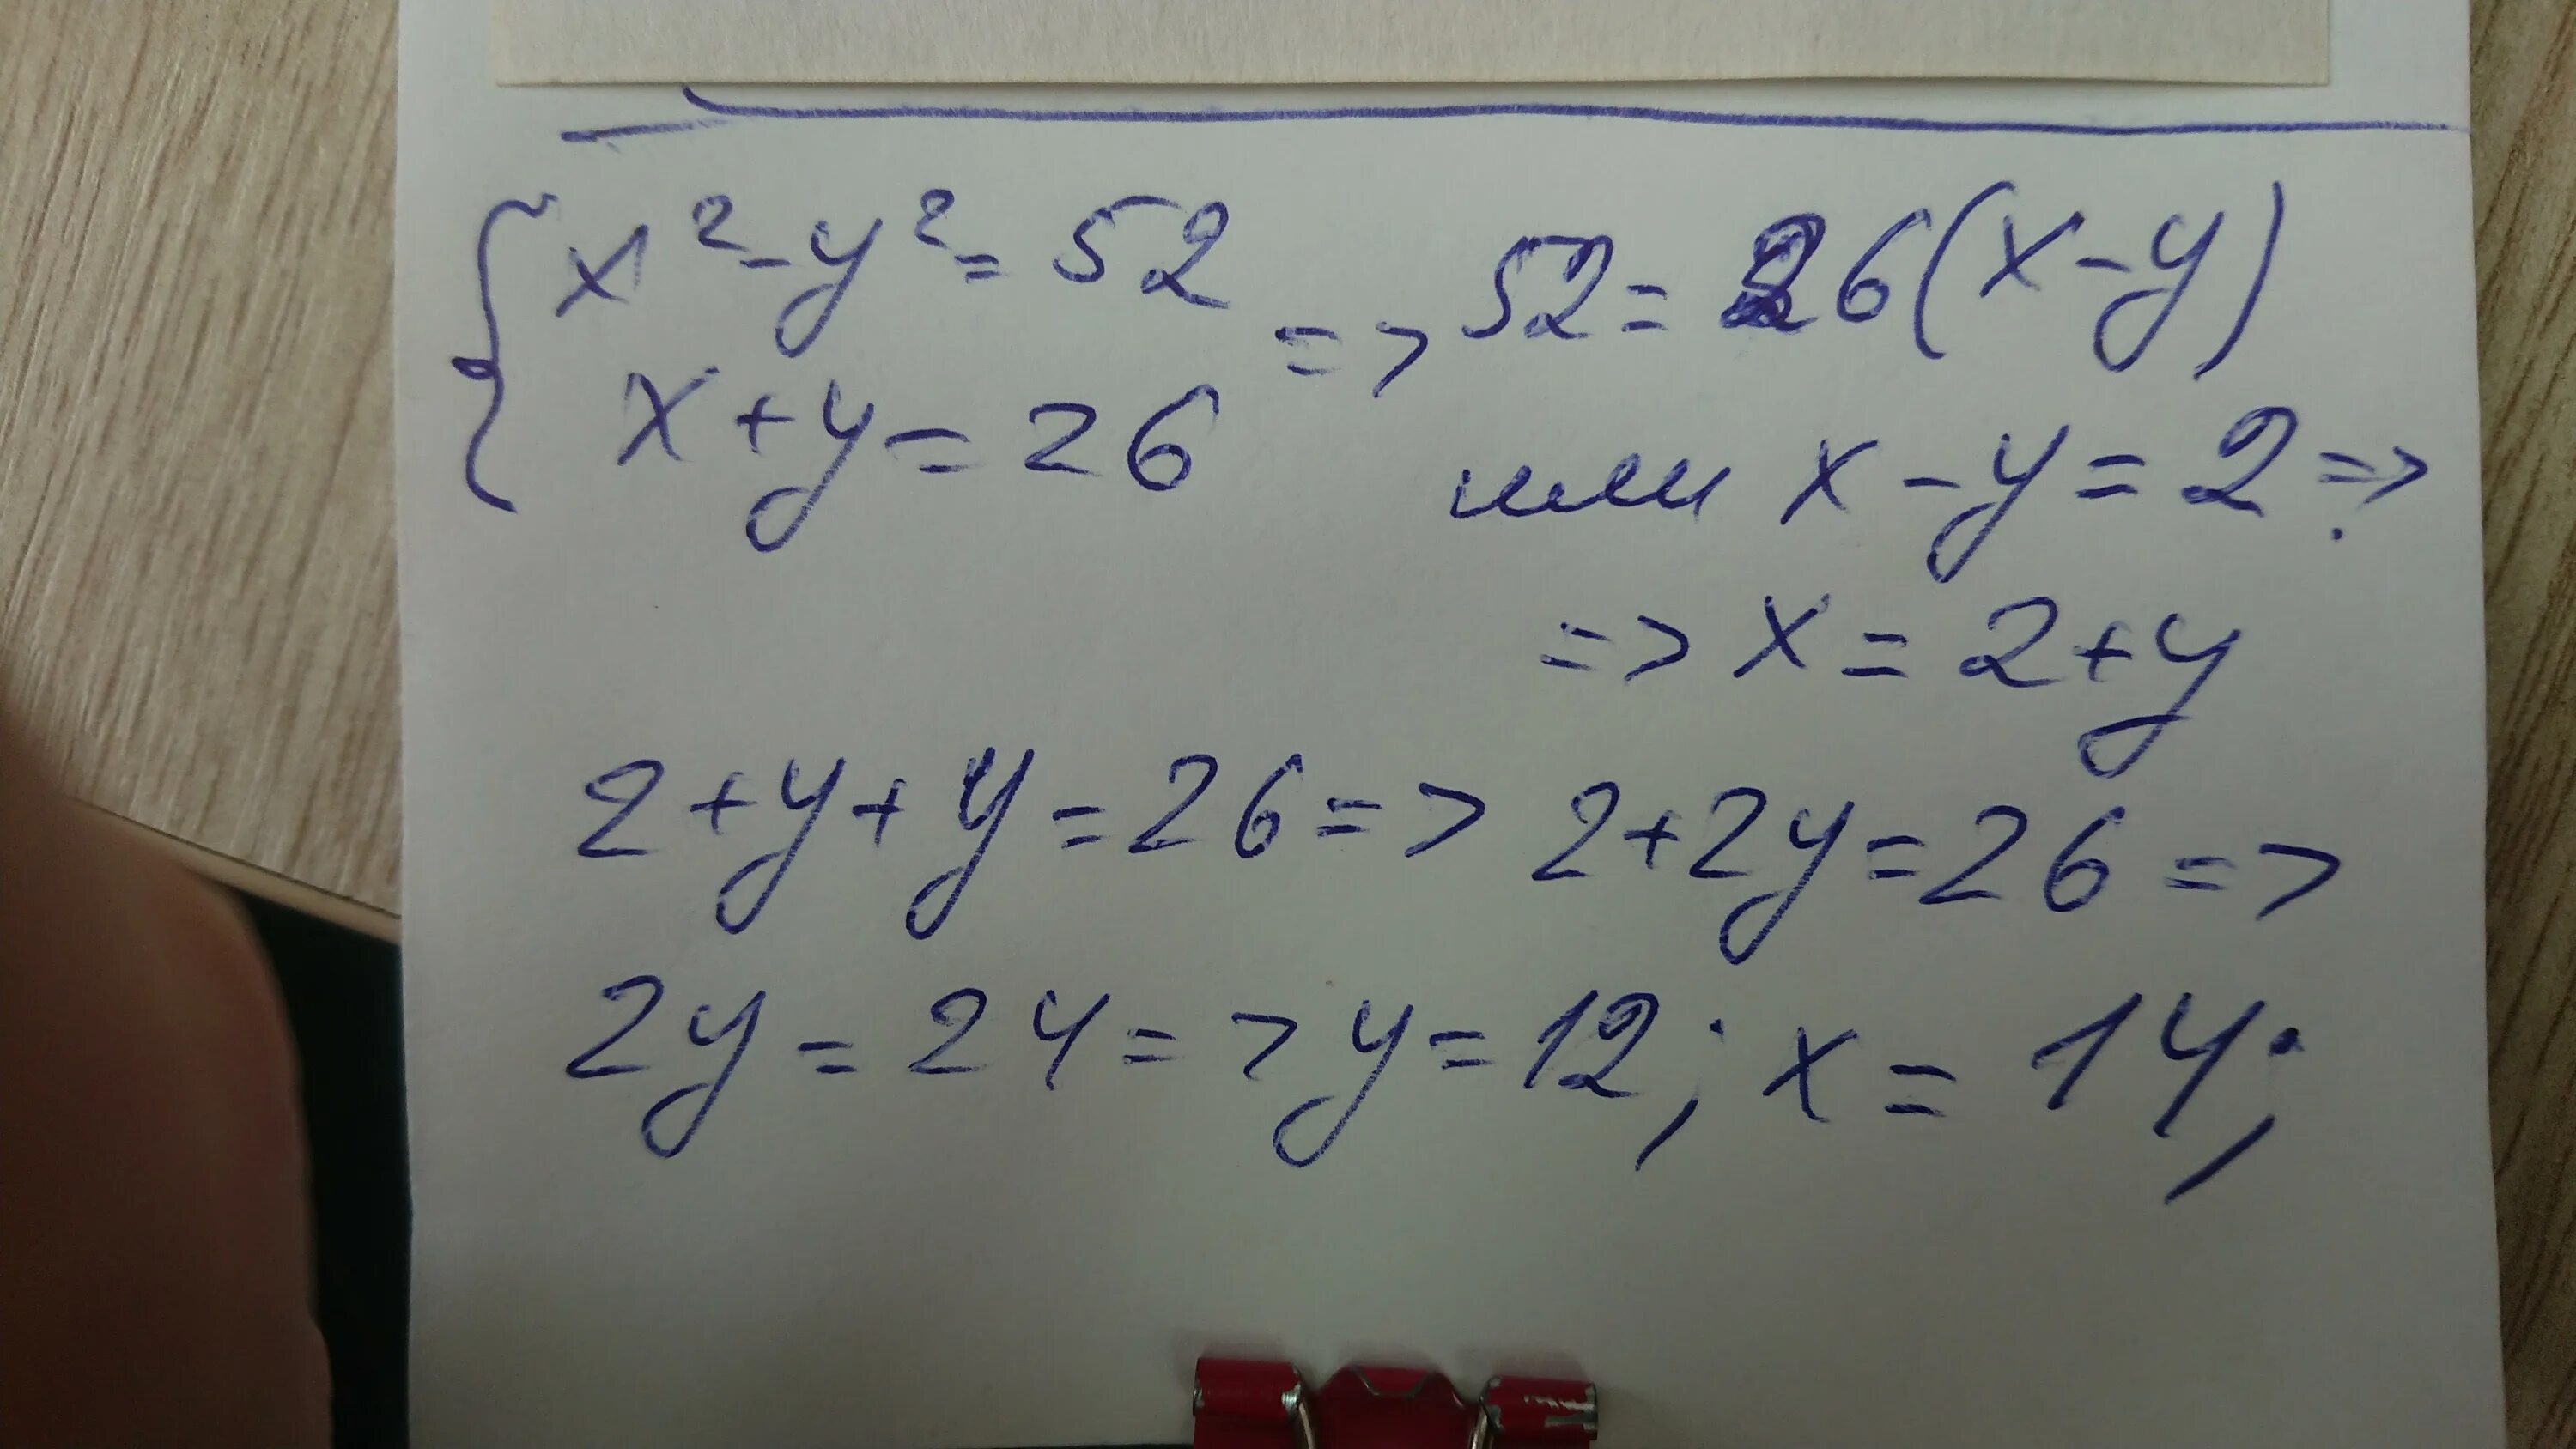 { x² - y² = 52 => 52 = 26(x - y)
x + y = 26 или x - y = 2 =>
=> x = 2 + y
2 + y + y = 26 => 2 + 2y = 26 =>
2y = 24 => y = 12; x = 14;